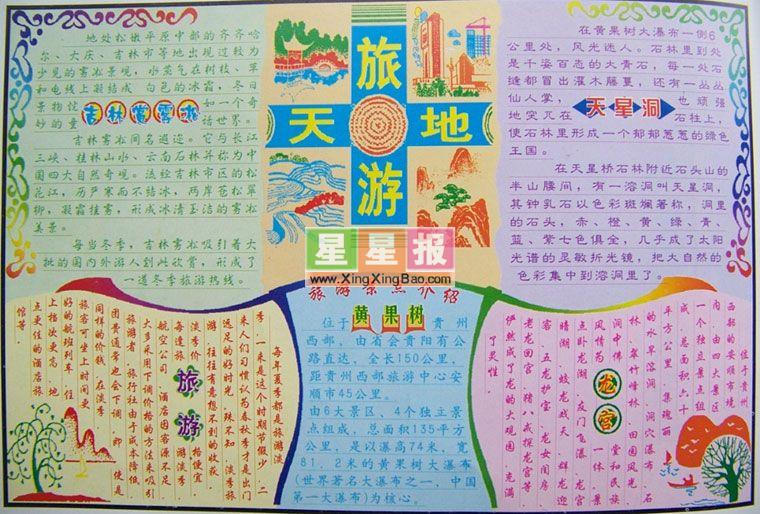 地处松嫩平原中部的齐齐哈
尔、大庆、吉林市等地出现过较为
少见的雾凇景观，水蒸气在树枝、草
和电线上凝结成 白色的冰霜，冬日
景物恍 和一个奇
妙的童 话世界。
吉林赏雾凇
吉林雾凇闻名遐迩， 它与长江
三峡、桂林山水、云南石林并称为中
国四大自然奇观。流经吉林市区的松
花江，历严寒而不结冰，两岸苍松翠
柳，凝霜挂雾，形成冰清玉洁的雾凇
美景。
每当冬季，吉林雾凇吸引着大
批的国内外游人到此欣赏，形成了
一道冬季旅游热线。
旅
天 地
游
星星报
www.XingXingBao.com
在黄果树大瀑布一侧6
公里处，风光迷人。石林里到处
是千姿百态的大青石，每一处石
缝都冒出灌木藤蔓，还有一丛丛
仙人掌， 也顽强
地突兀在 石柱上，
使石林里形成一个郁郁葱葱的绿色
王国。
天星洞
在天星桥石林附近石头山的
半山腰间，有一溶洞叫天星洞，
其钟乳石以色彩斑斓著称，洞里
的石头，赤、橙、黄、绿、青、
蓝、紫七色俱全，几乎成了太阳
光谱的灵敏折光镜，把大自然的
色彩集中到溶洞里了。
旅游景点介绍
黄果树
位于 贵州
西部，由省会贵阳有公
路直达，全长150公里，
距贵州西部旅游中心安
顺市45公里。
由6大景区、4个独立景
点组成，总面积135平方
公里，是以瀑高74米，宽
81.2米的黄果树大瀑布
(世界著名大瀑布之一，中国
第一大瀑布)为核心。
旅游
每年夏季都是旅游淡
季，一来是这个时期节假少，二
来人们习惯认为春秋季才是出门
远足的好时光，殊不知，淡季旅
往往有意想不到的收获
淡季价 格便宜，
每逢旅 游淡季
航空公司、酒店因客源不足
大多采用下调价格的方法来吸引
旅游者，旅行社由于成本降低
团费通常也会下调，即 使是
同样的价钱，在淡季
旅客可坐上时间更
好的航班列车，住
上档次更高、地
点更佳的酒店旅
馆等。
龙宫
位于贵州
西部的安顺市境
内，由四大景区
一个独立景点组
成，总面积六十
平方公里，集瑰丽
的水旱溶洞、洞穴瀑布、石
林、翠竹峰林、田园风光、
洞中佛 堂和民族
风情为 一体，景
点卧龙湖、友门飞瀑、龙宫
晴湖、蚊龙戏天、群龙迎
客、五龙护宝、龙女闺房
老龙回宫、猪八戒探龙宫等
俨然成了龙的大观园，充满
了灵性。